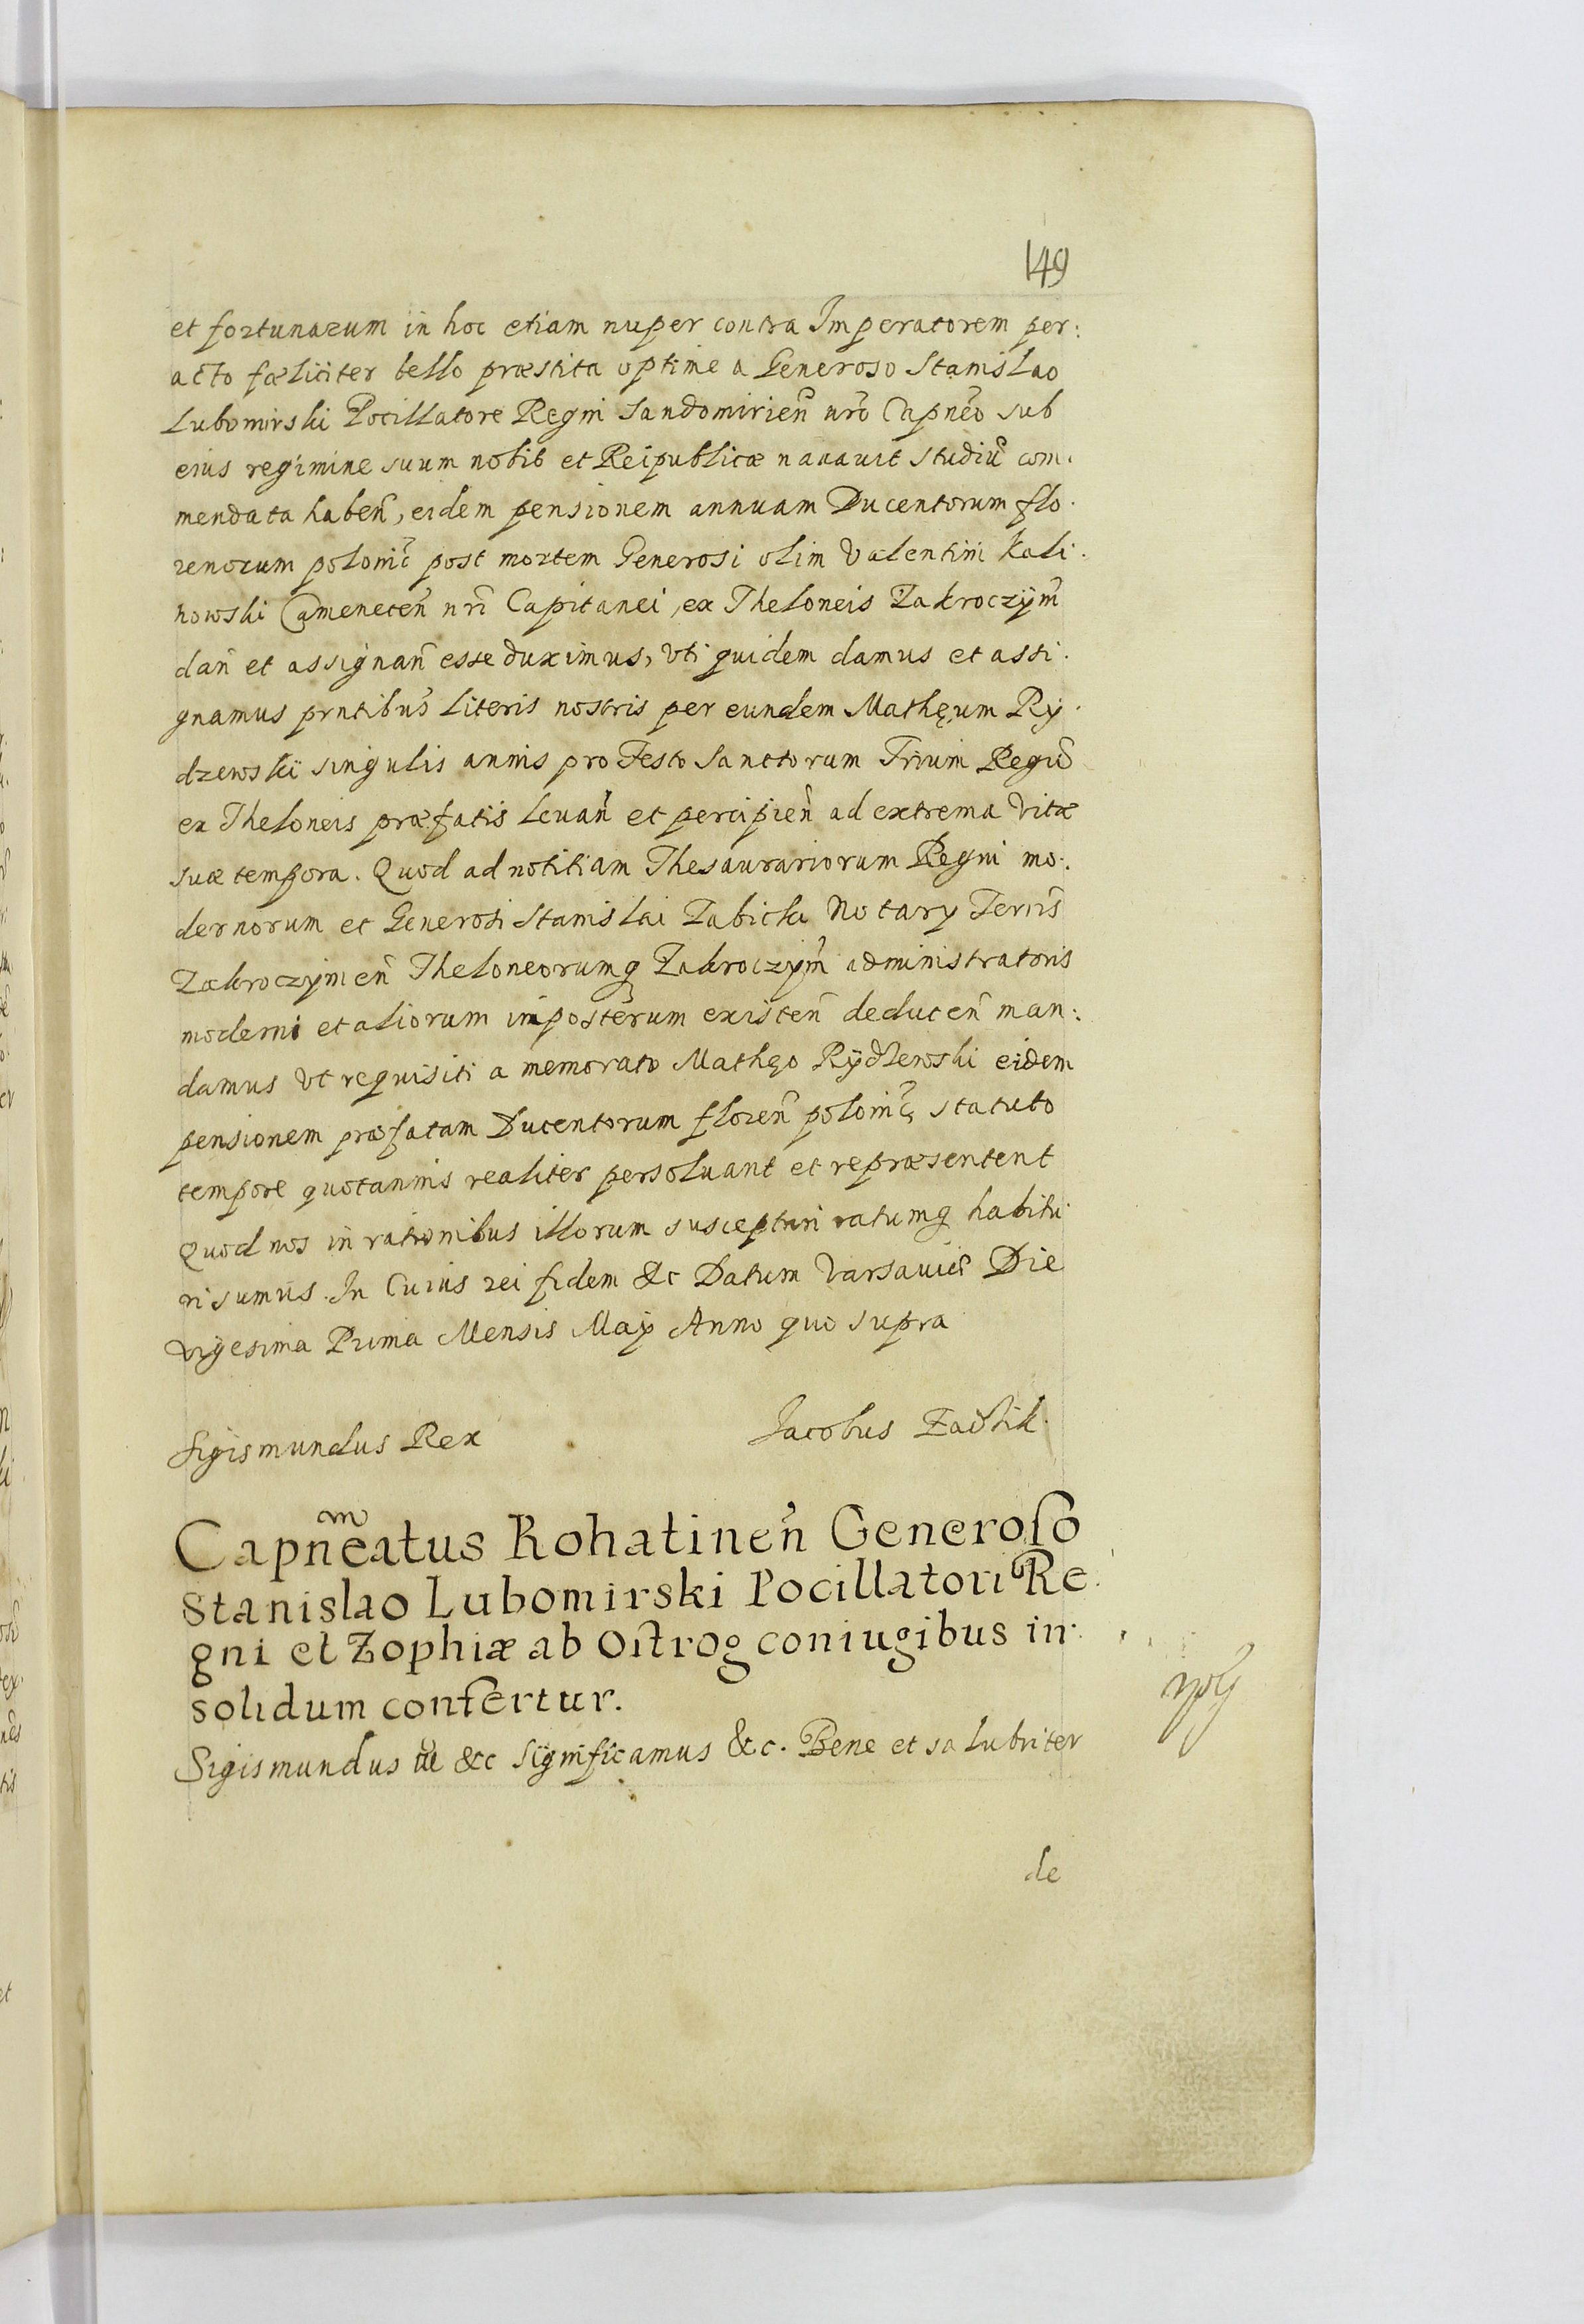 149
et fortunarum in hoc etiam nuper contra Imperatorem per:
acto fæliciter bello præstita optime a Generoso Stanislao
Lubomirski Pocillatore Regni Sandomirien̄ nrō Capnēo sub
eius regimine suum nobis et Reipublicæ nauauit studiū com.
mendata haben̄, eidem pensionem annuam Ducentorum flo.
renorum polonic̄ post mortem Generosi olim Valentini Kali.
nowski Cameneten̄ nrī Capitanei, ex Theloneis Zakroczÿm̄
dan̄ et assignan̄ esse duximus, Vti quidem damus et assi.
gnamus prntibus̄ literis nostris per eundem Mathęum Rÿ.
dzewskÿ singulis annis pro Festo Sanctorum Trium Regū
ex Theloneis præfatis Leuan̄ et percipien̄ ad extrema Vitæ
suæ tempora. Quod ad notitiam Thesaurariorum Regni mo.
dernorum et Generosi Stanislai Zabicki Notarÿ Terris̄
Zakroczÿmen̄ Theloneorumq Zakroczÿm̄ administratoris
moderni et aliorum inposterum existen̄ deducen̄ man:
damus Vt requisiti a memorato Mathęo Rÿdzewski eidem
pensionem præfatam Ducentorum floren̄ polonic̄ statuto
tempore quotannis realiter persoluant et repræsentent
Quod nos in rationibus illorum suscepturi ratumq habitu
ri sumus. In Cuius rei fidem &c Datum Varsauiē Die
vigesima Prima Mensis Maÿ Anno quo supra
Sigismundus Rex Jacobus Zadzik.
Capnēatus Rohatinen̄ Generoſo
Stanislao Lubomirski Pocillatori Re.
gni et Zophiæ ab Oſtrog coniugibus in
solidum confertur.
Sigismundus &c Significamus &c. Bene et salubriter
de